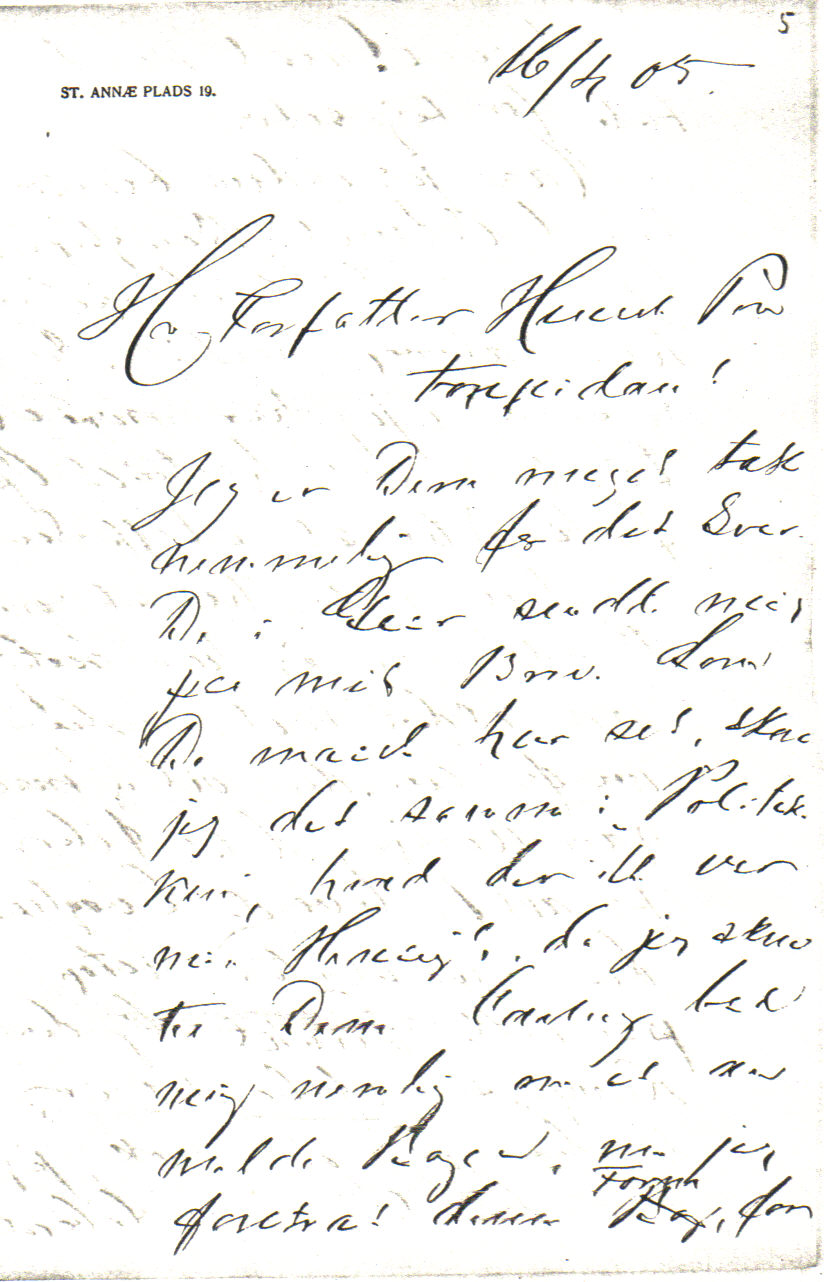 5
ST. ANNÆ PLADS 19.
16/4 05.
Hr. Forfatter Henrik Pon
toppidan!
Jeg er Dem meget tak
nemmelig for det Svar
De i Gaar sendte mig
paa mit Brev. Som
De maaske har set, skrev
jeg det samme i Politik
ken, hvad der ikke var
min Hensigt, da jeg skrev
til Dem.
mig nemlig om at an
melde Bogen, men jeg
foretrak denne Form, for